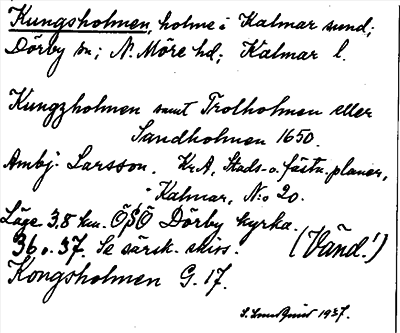 Kungsholmen, holme i Kalmar sund;
Dörby sn; N. Möre hd; Kalmar l.
Kungzholmen samt Trolholmen eller
Sandholmen 1650.
Ambj. Larsson. Kr.A, Stads- o. fästn. planer,
Kalmar, N:o 20.
Läge 3,8 km. ÖSÖ Dörby kyrka.
36 o. 37. Se särsk. skiss. (Vänd!)
Kongsholmen G. 17.
1937.